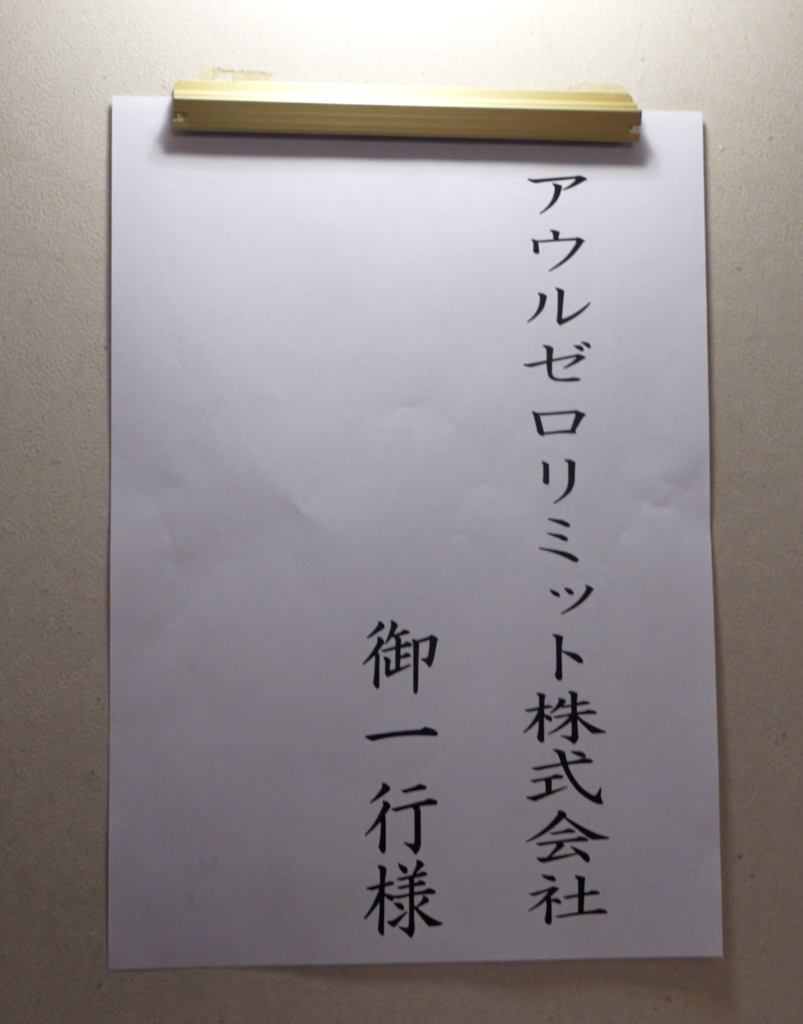 アウルゼロリミット株式会社
御一行様